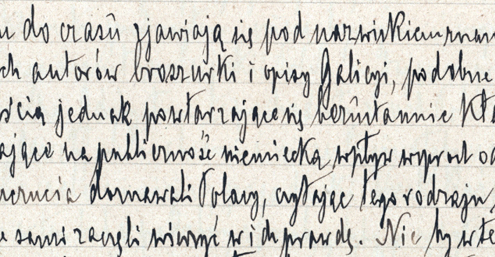 do czasu zjawiają się pod nazwiskiem
autorów broszurki i opisy Galicyi, podobne
jednak powtarzające się bezustannie
na publiczność niemiecką wpływ wyprost
doznawali Polacy, czytając tego rodzaju
sami zaczęli wierzyć w ich prawdę. Nic by